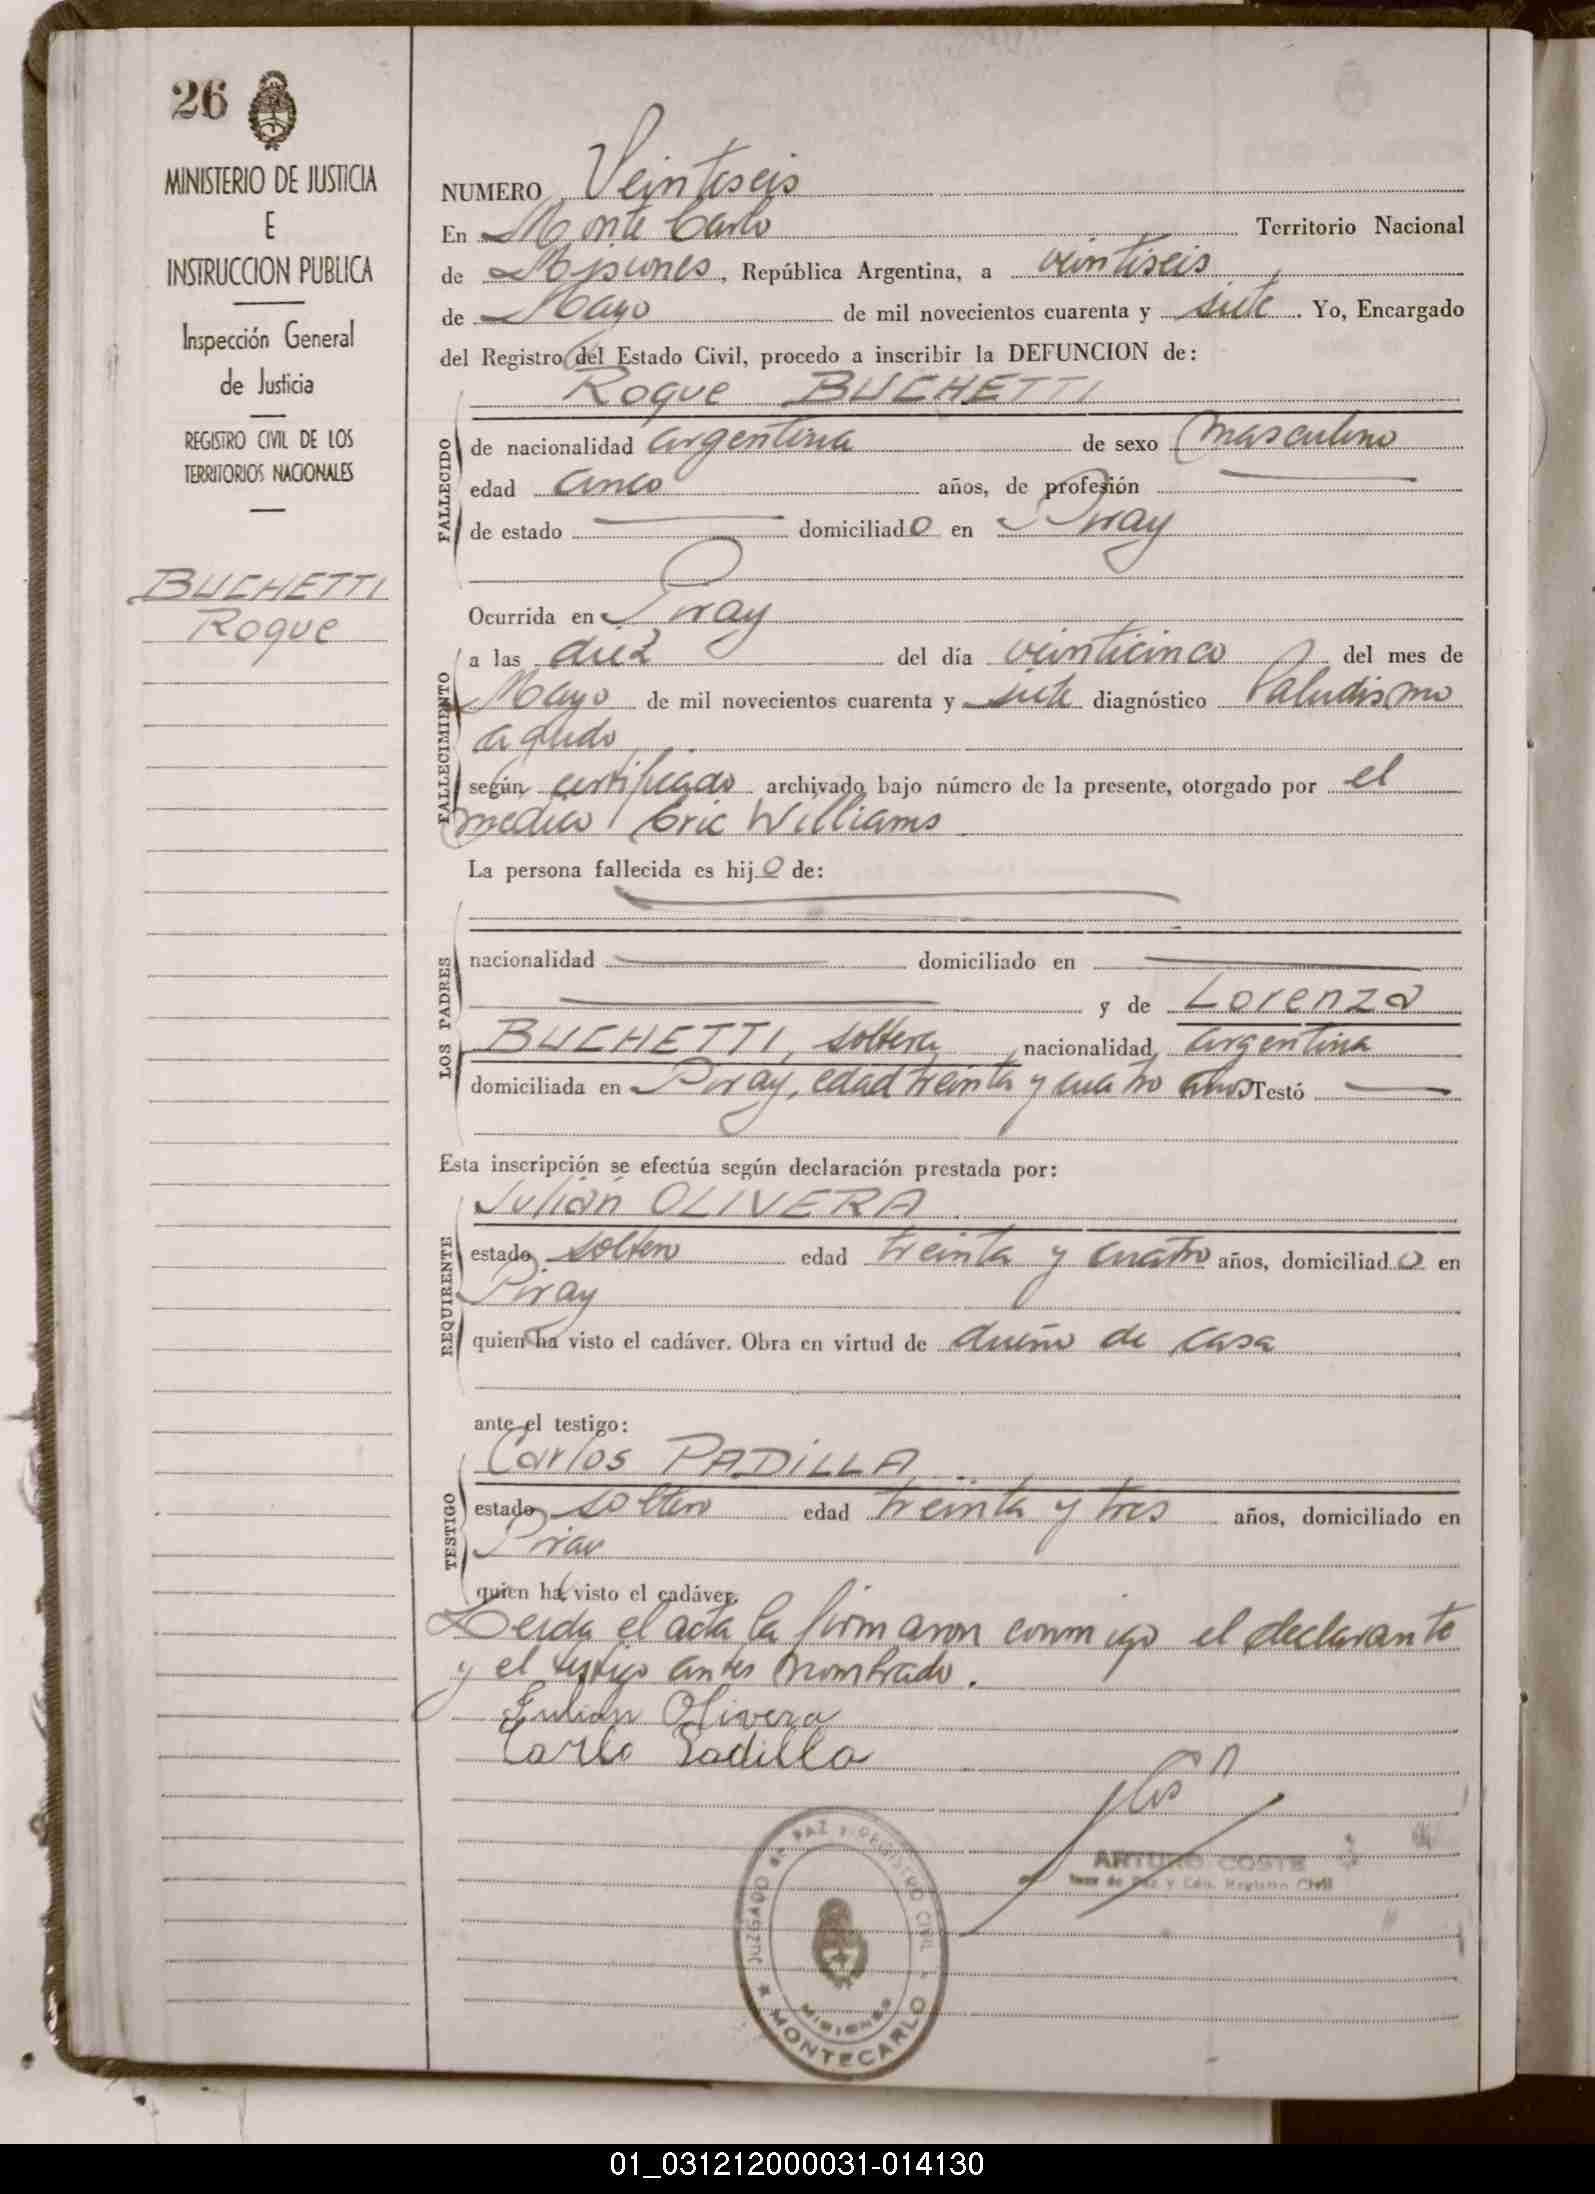 26
MINISTERIO DE JUSTICIA
E
INSTRUCCION PUBLICA
Inspección General
de Justicia
REGISTRO CIVIL DE LOS
TERRITORIOS NACIONALES
BUCHETTI
Roque
NUMERO Veintiseis
En Monte Carlo Territorio Nacional
de Misiones, República Argentina, a veintiseis
de Mayo de mil novecientos cuarenta y siete. Yo, Encargado
del Registro del Estado Civil, procedo a inscribir la DEFUNCION de:
Roque BUCHETTI
FALLECIDO
de nacionalidad argentina de sexo masculino
edad cinco años, de profesión
de estado domiciliado en Piray
Ocurrida en Piray
FALLECIMIENTO
a las diez del día veinticinco del mes de
Mayo de mil novecientos cuarenta y siete diagnóstico Paludismo
agudo
según certificado archivado bajo número de la presente, otorgado por el
medico Eric Williams
La persona fallecida es hijo de:
LOS PADRES
nacionalidad domiciliado en
y de Lorenza
BUCHETTI, soltera, nacionalidad argentina
domiciliada en Piray, edad treinta y cuatro años Testó
Esta inscripción se efectúa según declaración prestada por:
REQUIRENTE
Julián OLIVERA
estado soltero edad treinta y cuatro años, domiciliado en
Piray
quien ha visto el cadáver. Obra en virtud de dueño de casa
ante el testigo:
TESTIGO
Carlos PADILLA
estado soltero edad treinta y tres años, domiciliado en
Piray
quien ha visto el cadáver.
Leida el acta la firmaron conmigo el declarante
y el testigo antes nombrado.
Julian Olivera
Carlo Padilla
ARTURO COSTE
Juez de Paz y Enc. Registro Civil
JUZGADO de PAZ Y REGISTRO CIVIL
MISIONES
MONTECARLO
01_031212000031-014130